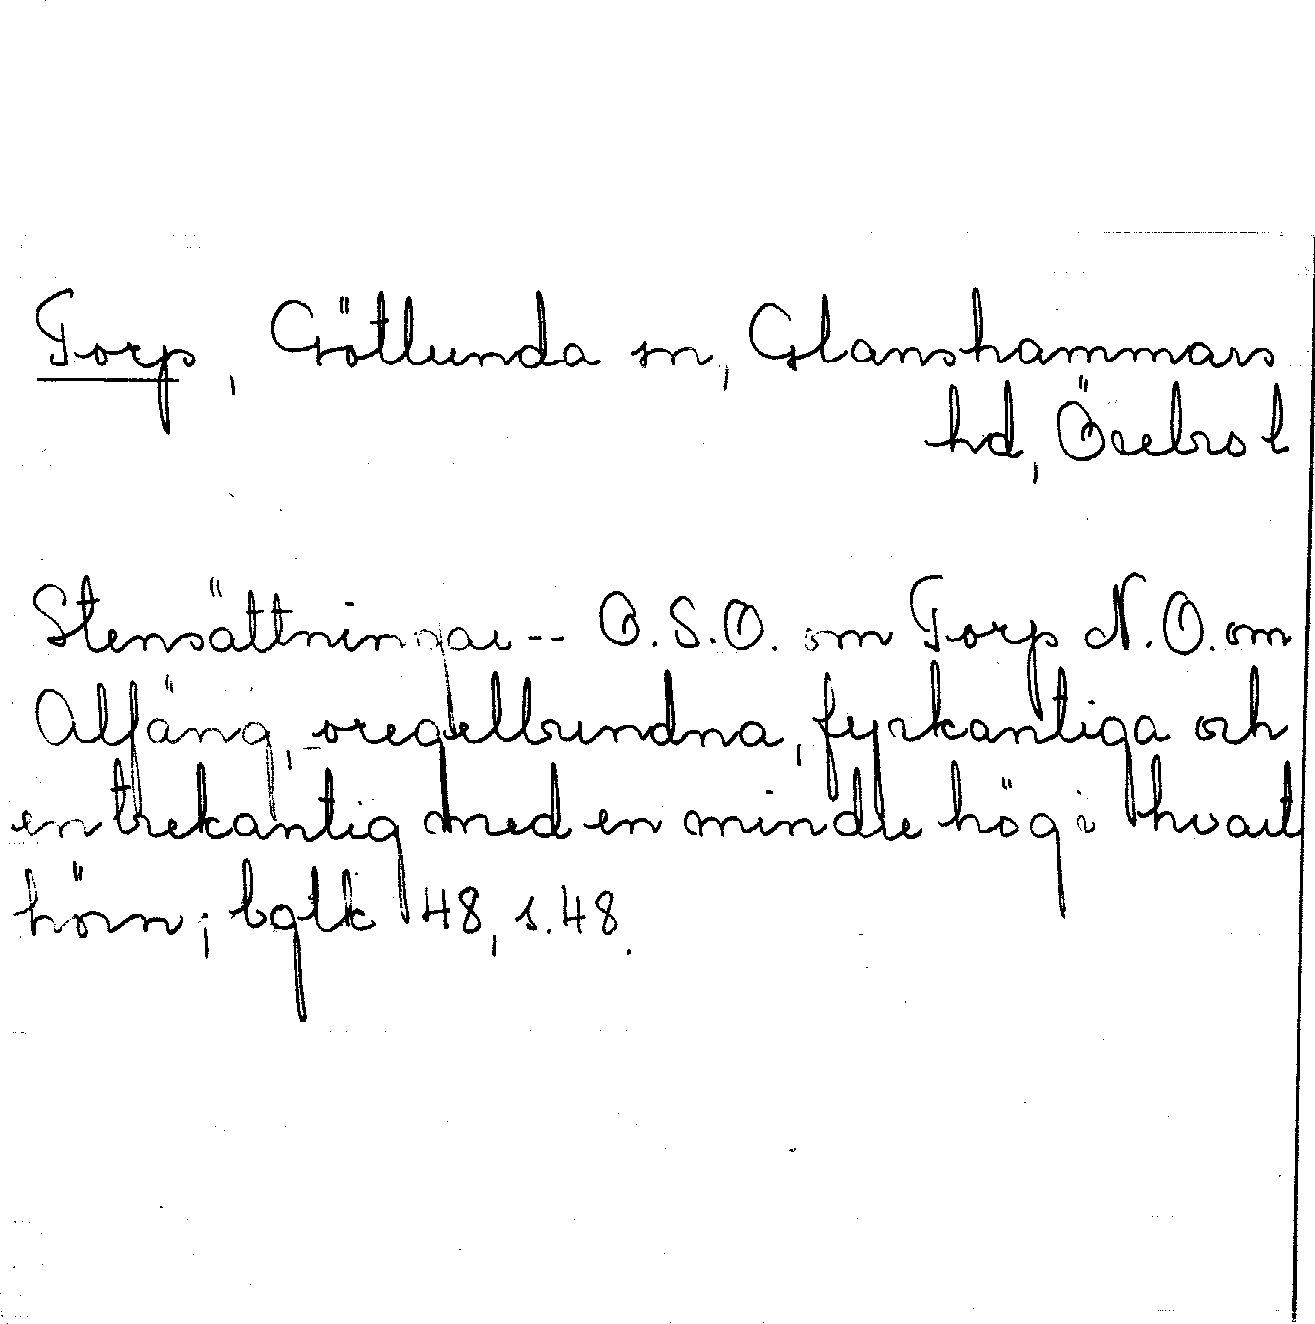 Torp, Götlunda sn, Glanshammars
hd, Örebro l
Stensättningar -- O.S.O. om Torp N.O. om
Alfäng, oregelbundna, fyrkantiga och
en trekantig med en mindre hög i hvart
hörn; bglk 48, s. 48.